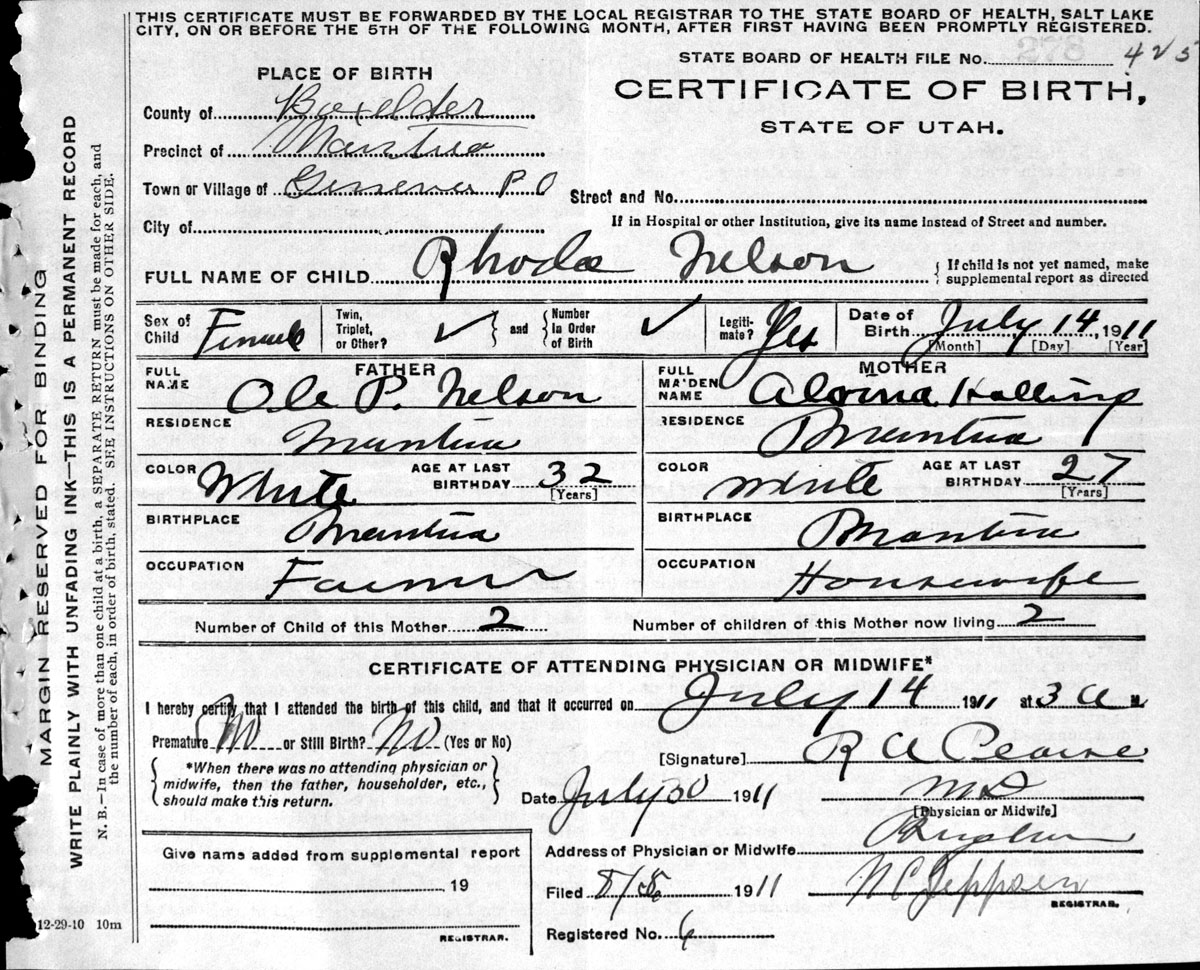 THIS CERTIFICATE MUST BE FORWARDED BY THE LOCAL REGISTRAR TO THE STATE BOARD OF HEALTH, SALT LAKE
CITY, ON OR BEFORE THE 5TH OF THE FOLLOWING MONTH, AFTER FIRST HAVING BEEN PROMPTLY REGISTERED.
STATE BOARD OF HEALTH FILE No. 278 425
PLACE OF BIRTH
CERTIFICATE OF BIRTH,
STATE OF UTAH.
County of Boxelder
Precinct of Mantua
Town or Village of P O
Street and No.
City of
If in Hospital or other Institution, give its name instead of Street and number.
FULL NAME OF CHILD Rhoda Nelson { If child is not yet named, make supplemental report as directed
Sex of Child Female Twin, Triplet, or Other? ✓ } and { Number in Order of Birth ✓ Legitimate? Yes Date of Birth July 14, 1911
[Month] [Day] [Year]
FATHER
FULL NAME Ole P. Nelson
RESIDENCE Mantua
COLOR White AGE AT LAST BIRTHDAY 32
[Years]
BIRTHPLACE Mantua
OCCUPATION Farmer
MOTHER
FULL MAIDEN NAME
RESIDENCE Mantua
COLOR White AGE AT LAST BIRTHDAY 27
[Years]
BIRTHPLACE Mantua
OCCUPATION Housewife
Number of Child of this Mother 2 Number of children of this Mother now living 2
CERTIFICATE OF ATTENDING PHYSICIAN OR MIDWIFE*
I hereby certify that I attended the birth of this child, and that it occurred on July 14 1911 at 3 a M.
Premature No or Still Birth? No (Yes or No)
[Signature] R A Pearse
*When there was no attending physician or
midwife, then the father, householder, etc.,
should make this return.
Date July 30 1911 M D
[Physician or Midwife]
Address of Physician or Midwife Brigham
Filed 1911 N C Jeppsen
REGISTRAR.
Registered No. 6
Give name added from supplemental report
19
REGISTRAR.
12-29-10 10m
MARGIN RESERVED FOR BINDING
WRITE PLAINLY WITH UNFADING INK—THIS IS A PERMANENT RECORD
N. B.—In case of more than one child at a birth, a SEPARATE RETURN must be made for each, and
the number of each, in order of birth, stated. SEE INSTRUCTIONS ON OTHER SIDE.